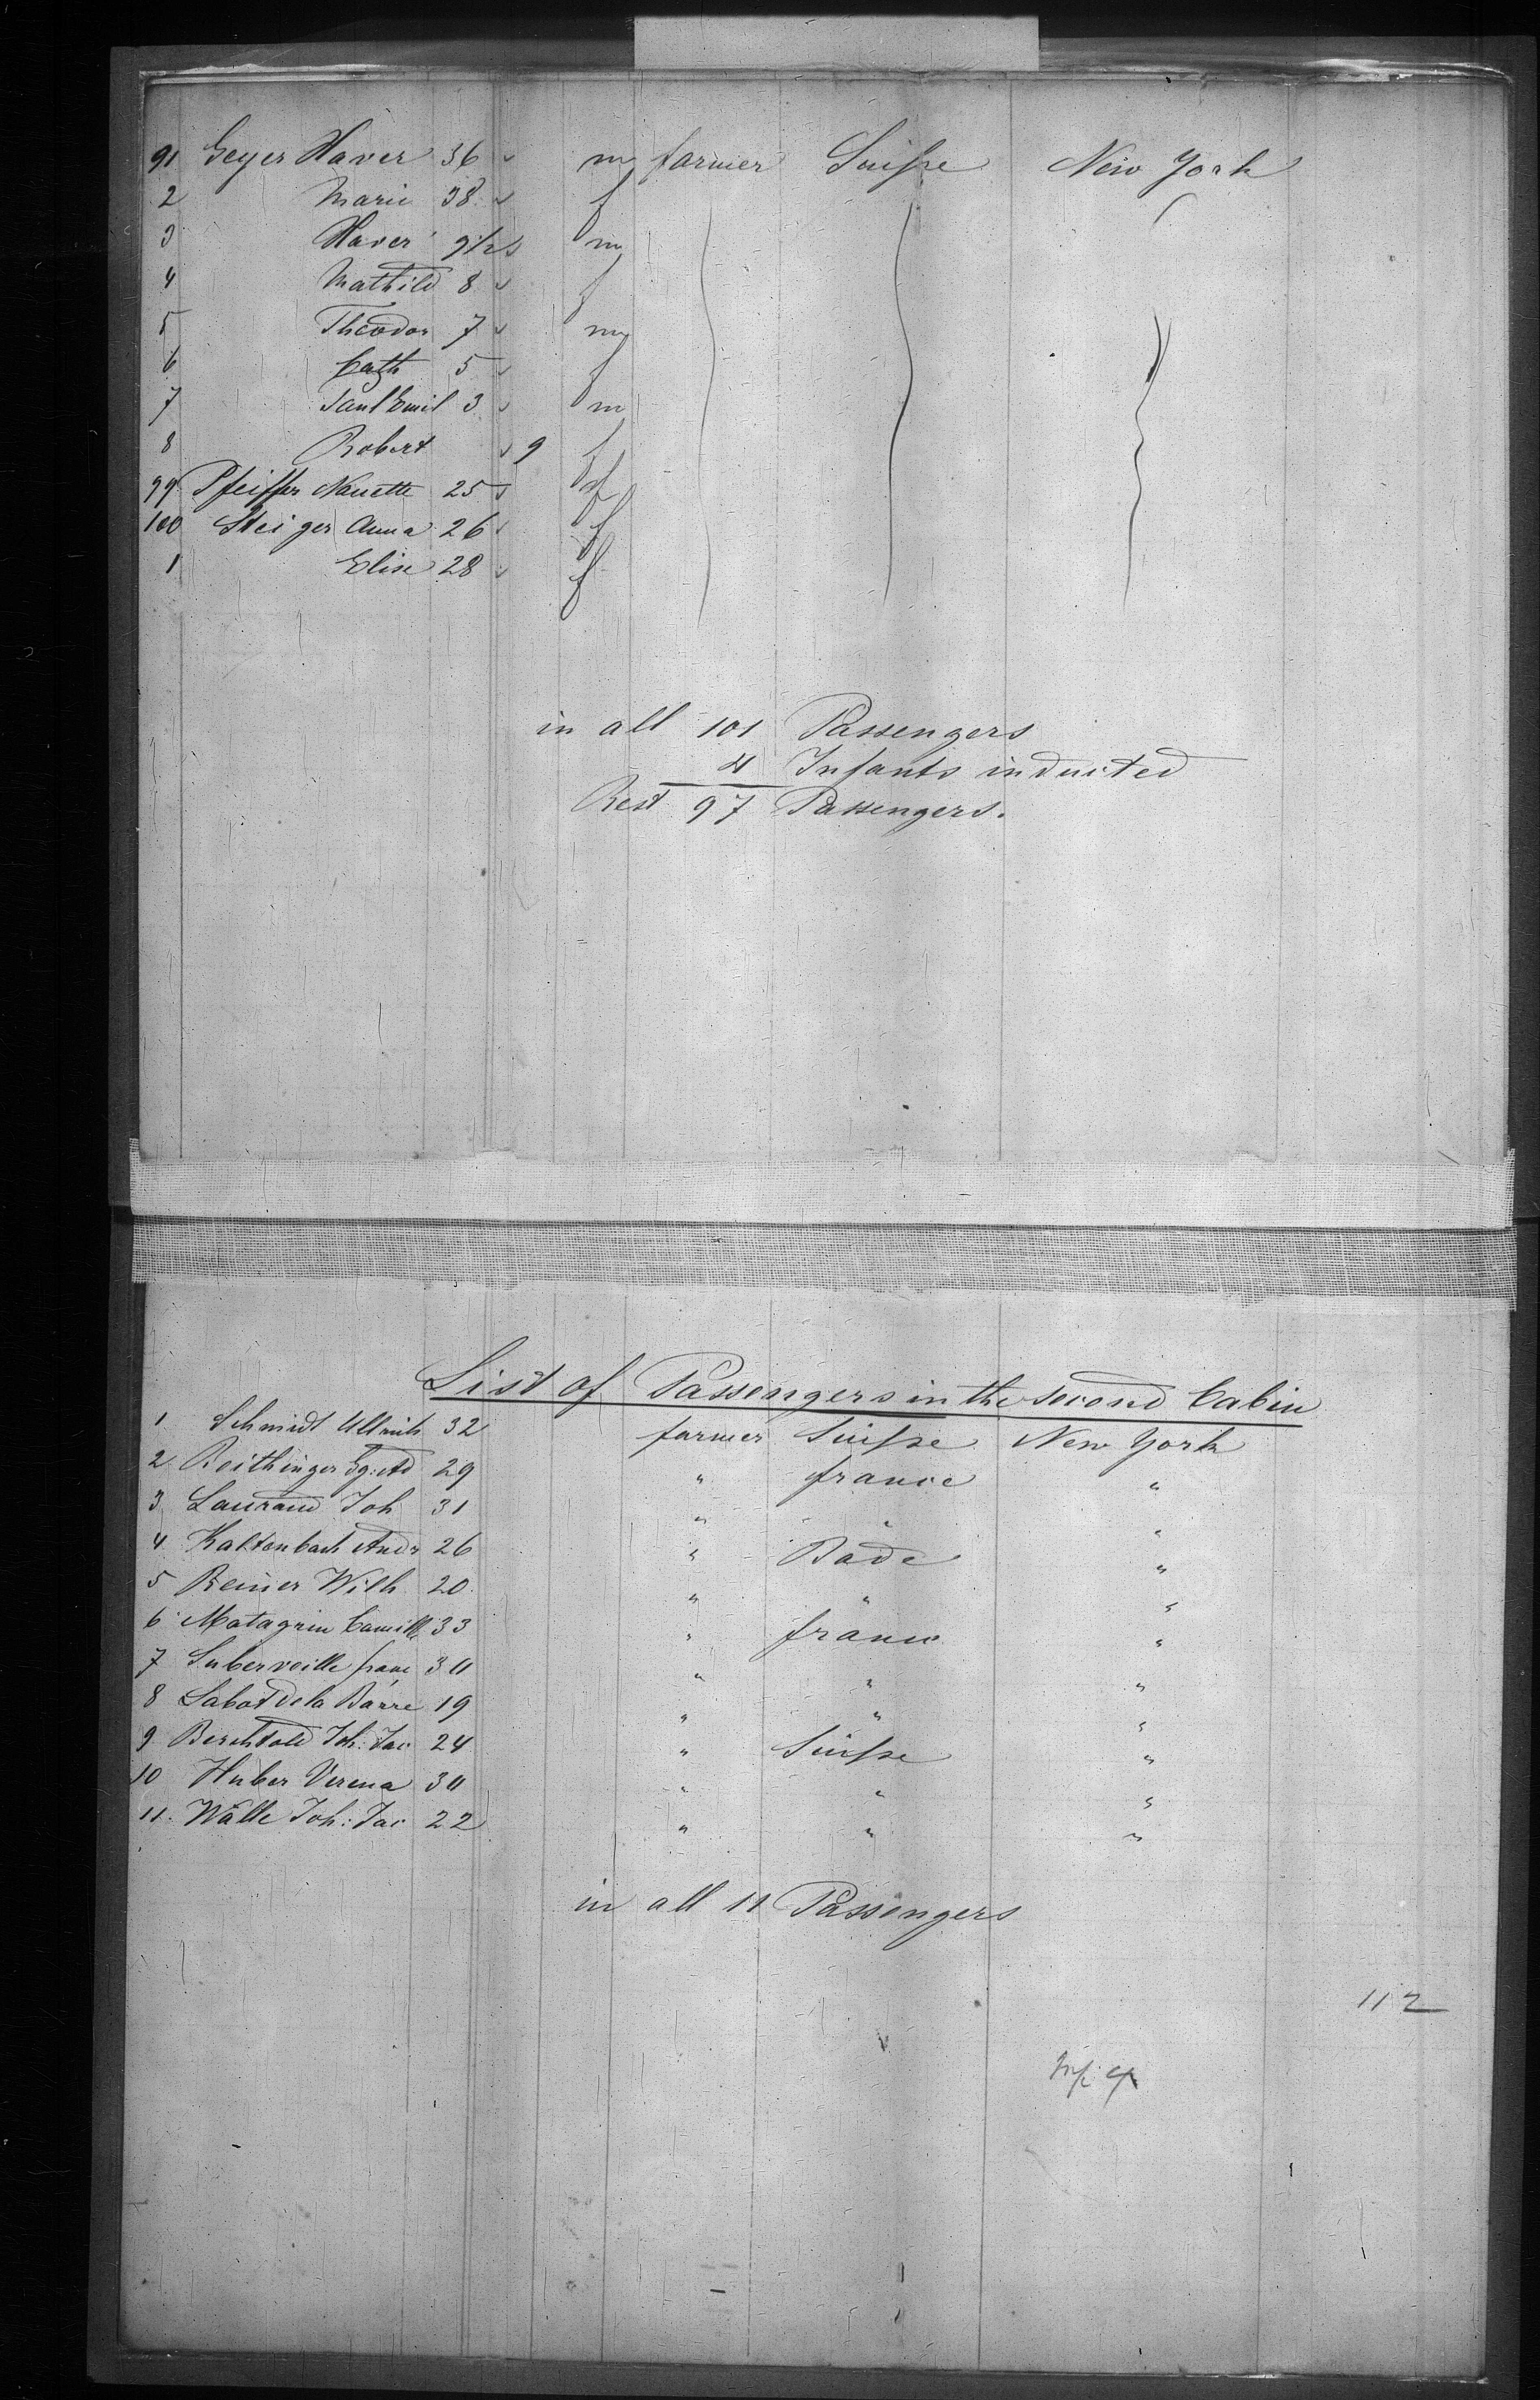 91 Geyer Xaver 36 m farmer Suisse New York
2 Marie 38 f
3 Xaver 9½ m
4 Mathild 8 f
5 Theodor 7 m
6 Cath 5 f
7 Paul Emil 3 m
8 Robert 9
99 Pfeiffer Nanette 25 f
100 Steiger Anna 26 f
1 Elise 28 f
in all 101 Passengers
4 Infants inducted
Rest 97 Passengers.
List of Passengers in the second Cabin
1 Schmidt Ullrich 32 farmer Suisse New York
2 Reithinger Ig: Ad 29 " france "
3 Laurand Joh 31 " " "
4 Kaltenbach Andr 26 " Bade "
5 Reiner Wilh 20 " " "
6 Matagrin Camille 33 " france "
7 Suberveille franc 30 " " "
8 Labat de la Barre 19 " " "
9 Berchtold Joh: Jac 24 " Suisse "
10 Huber Verena 30 " " "
11. Wälle Joh: Jac 22 " " "
in all 11 Passengers
112